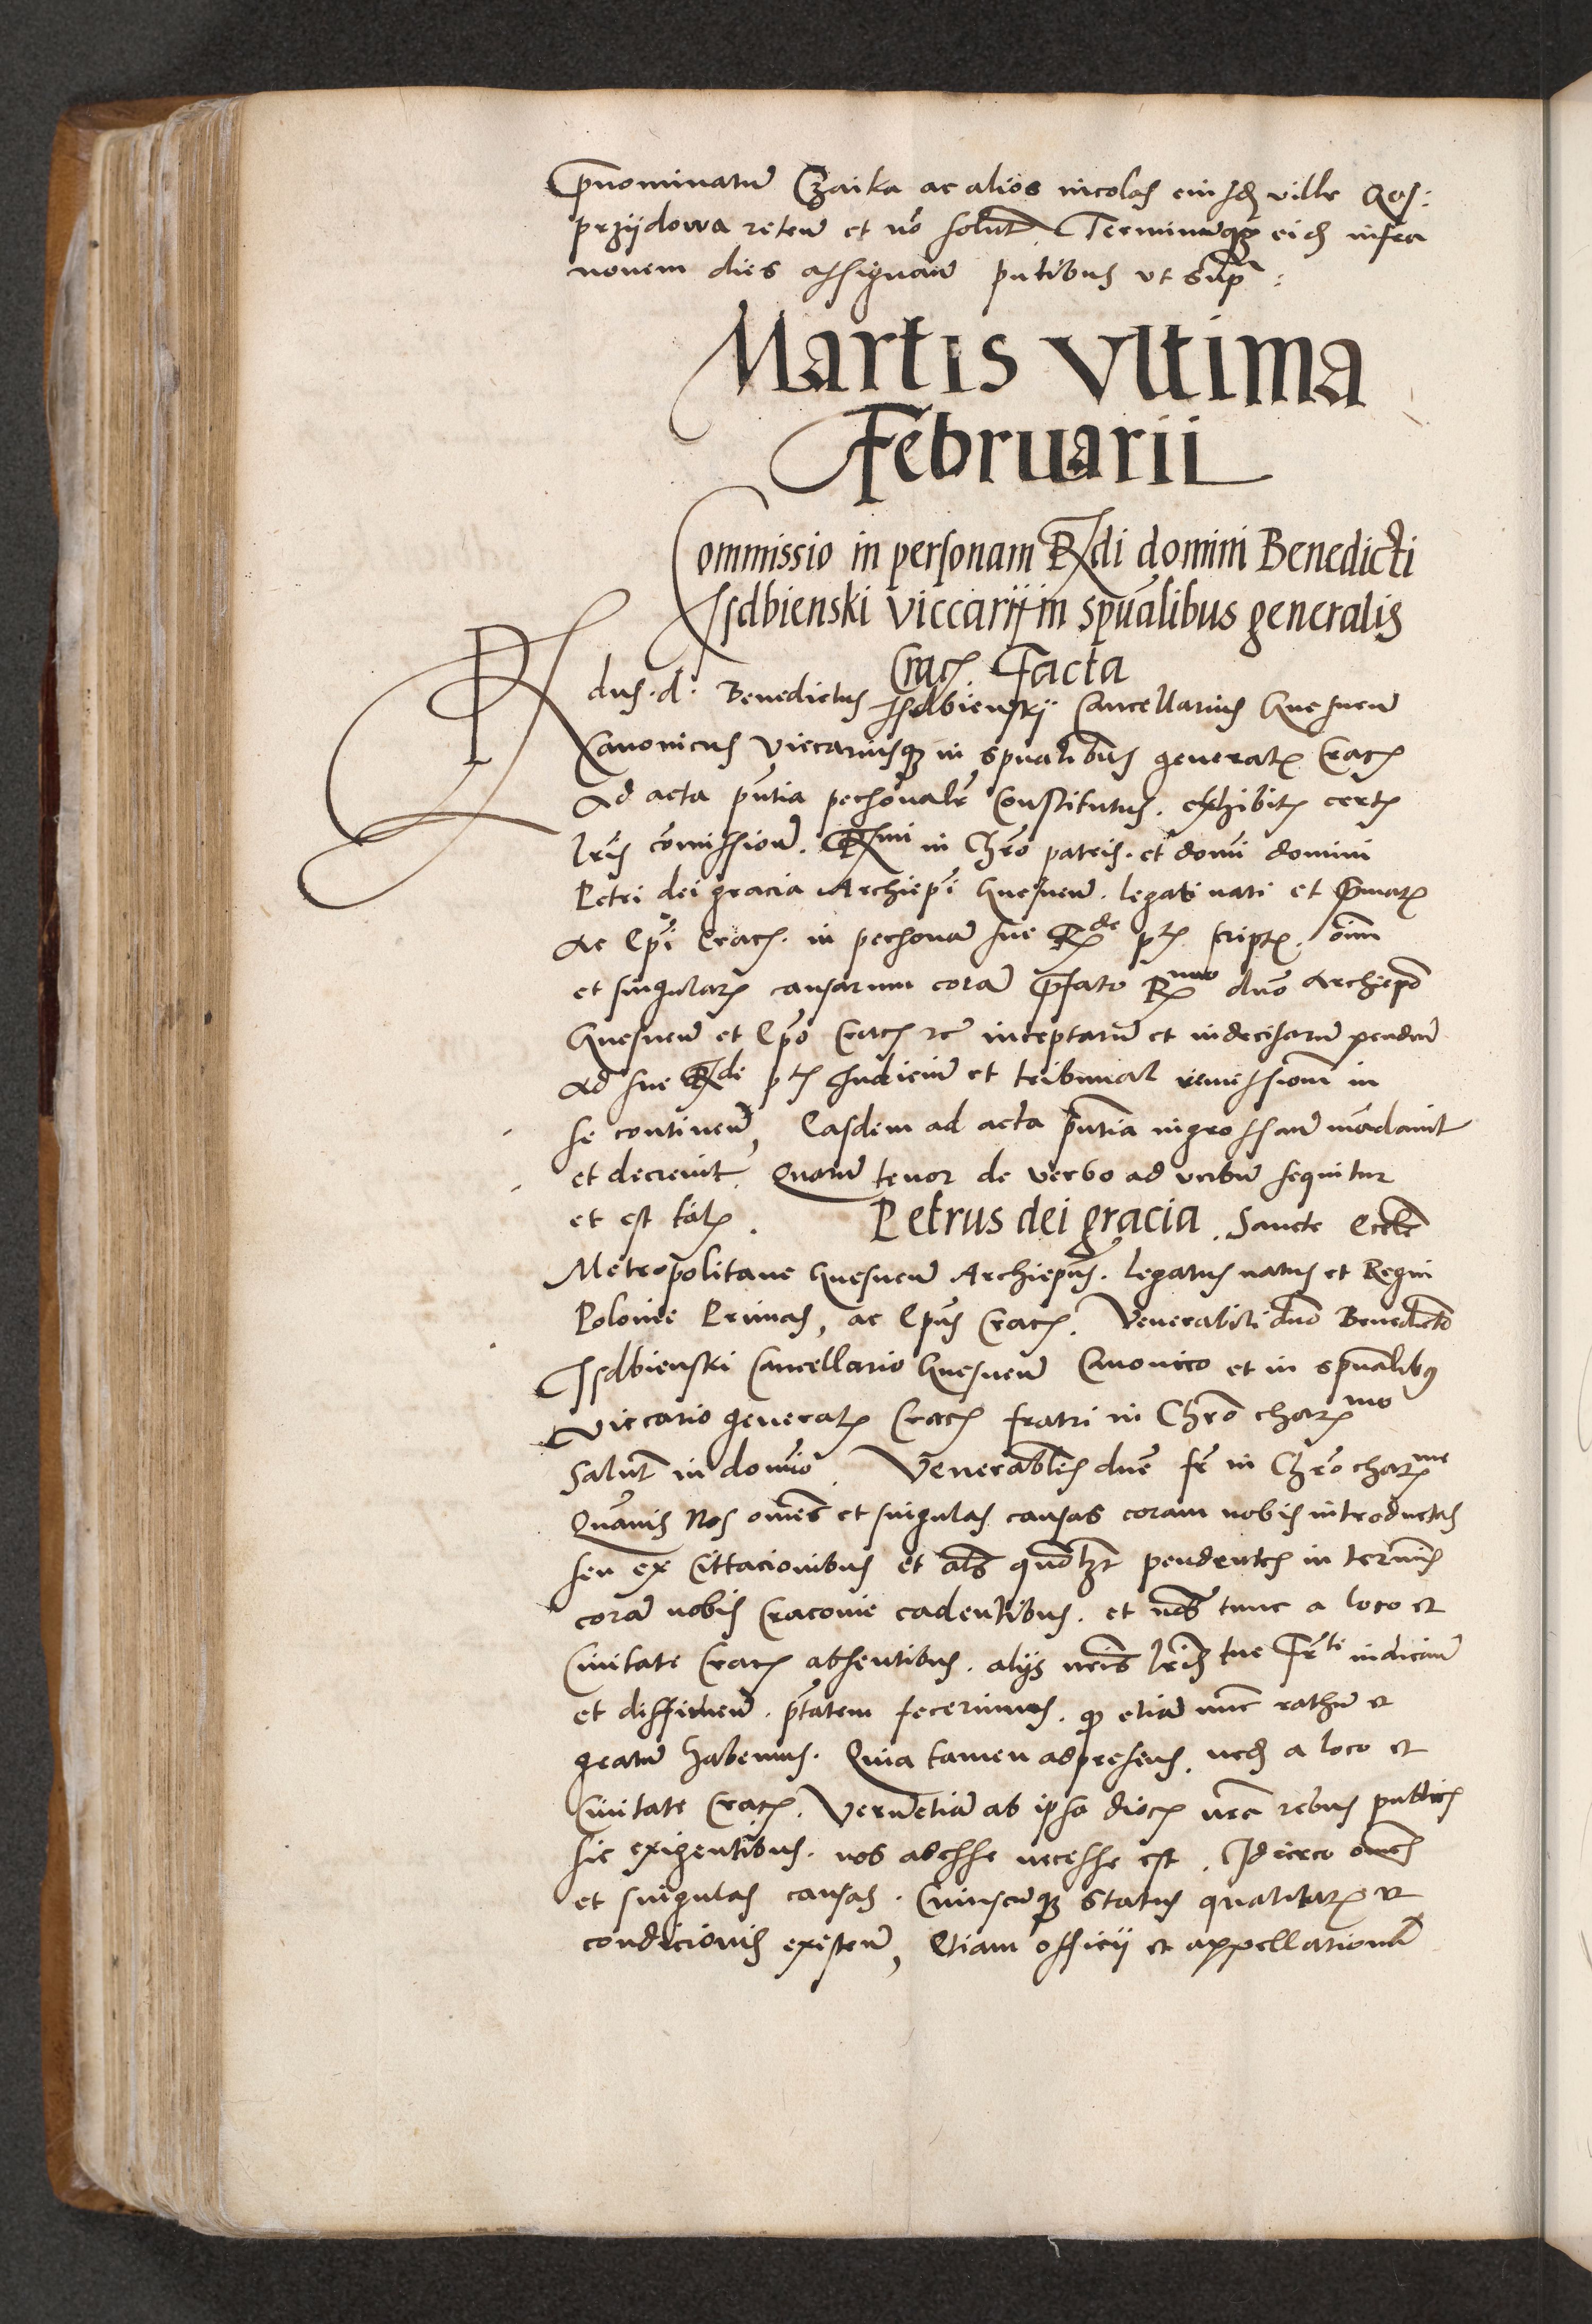 Prenominatum Czaika ac alios incolas eiusdem ville Ros:
przijdowa retem et no solut. Terminumq eid infra
novem dies assignan pntibus ut supra:
Martis Vltima
Februarii
Commissio in personam Rdi domini Benedicti
Isdbienski viccarij in spualibus generalis
Crac. Facta
Rdus. d. Benedictus Isdbienskij Cancellarius Gnesnen
Canonicus Viccariusq in spualibus general Crac
Ad acta pntia personalr Constitutus. exhibit cert
lris comission. Rsmi in Chro patris. et domi domini
Petri dei gracia Archiepi Gnesnen. legati nati et Primat
Ac Epi Crac. in persona sue Rde pt script. oim
et singular causarum cora prefato Rmo dno Archiepo
Gnesnen et Epo Crac rc inceptaru et indecisaru penden
Ad sue Rde pt Iudiciu et tribunal remission in
se continen, Easdem ad acta pntia ingrossari mandauit
et decreuit. Quaru tenor de verbo ad verbu sequitur
et est talis. Petrus dei gracia. Sancte Eccle
Metropolitane Gnesnen Archiepus. legatus natus et Regni
Polonie Primas, ac Epus Crac. Venerabili dno Benedicto
Isdbienski Cancellario Gnesnen Canonico et in spualibus
Viccario general Crac fratri in Chro charmo
Salut in domino. Venerablis dne fr in Chro charme
Quauis Nos omes et singulas causas coram nobis introductas
seu ex Cittacionibus et als quolzt pendentes in terminis
cora nobis Cracouie cadentibus. et nobs tunc a loco et
Ciuitate Crac absentibus. alijs nris lris tue Frti iudican
et diffinien. ptatem fecerimus. q etia nunc rathu et
gratu habemus. Quia tamen adpresens. ned a loco et
Ciuitate Crac. Verumetia ab ipsa dioc nra rebus publicis
sic exigentibus. nos abesse necesse est. Idcirco omes
et singulas causas. Cuiuscuq status qualitatis et
condicionis existen, Etiam officij et appellationu